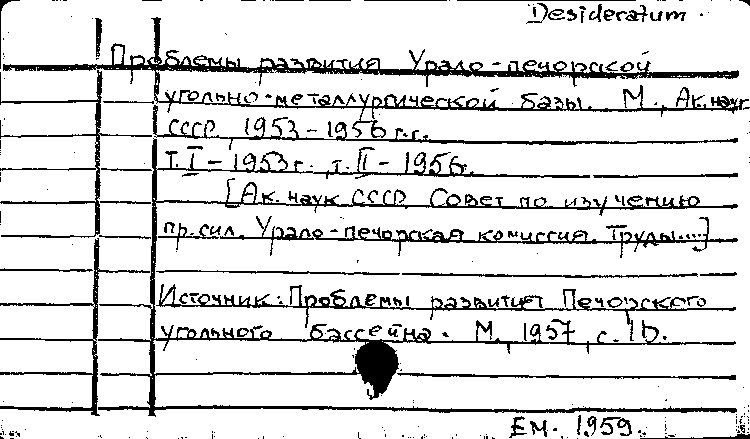 Desideratum.
Проблемы развития Урало-печорской
угольно-металлургической базы. М., Ак. наук
СССР, 1953-1956 г.г.
т. I - 1953 г., т. II - 1956.
[Ак. наук СССР. Совет по изучению
пр. сил. Урало-печорская комиссия. Труды....]
Источник: Проблемы развития Печорского
угольного бассейна. М., 1957, с.
ЕМ. 1959.